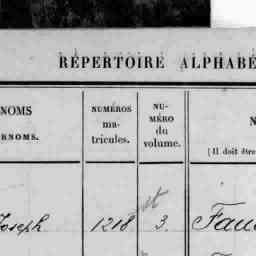 RÉPERTOIRE ALPHABÉ
NOMS
RNOMS.
NUMÉROS
ma-
tricules.
NU-
MÉRO
du
volume.
N
(Il doit être
Joseph 1218 3 Fau